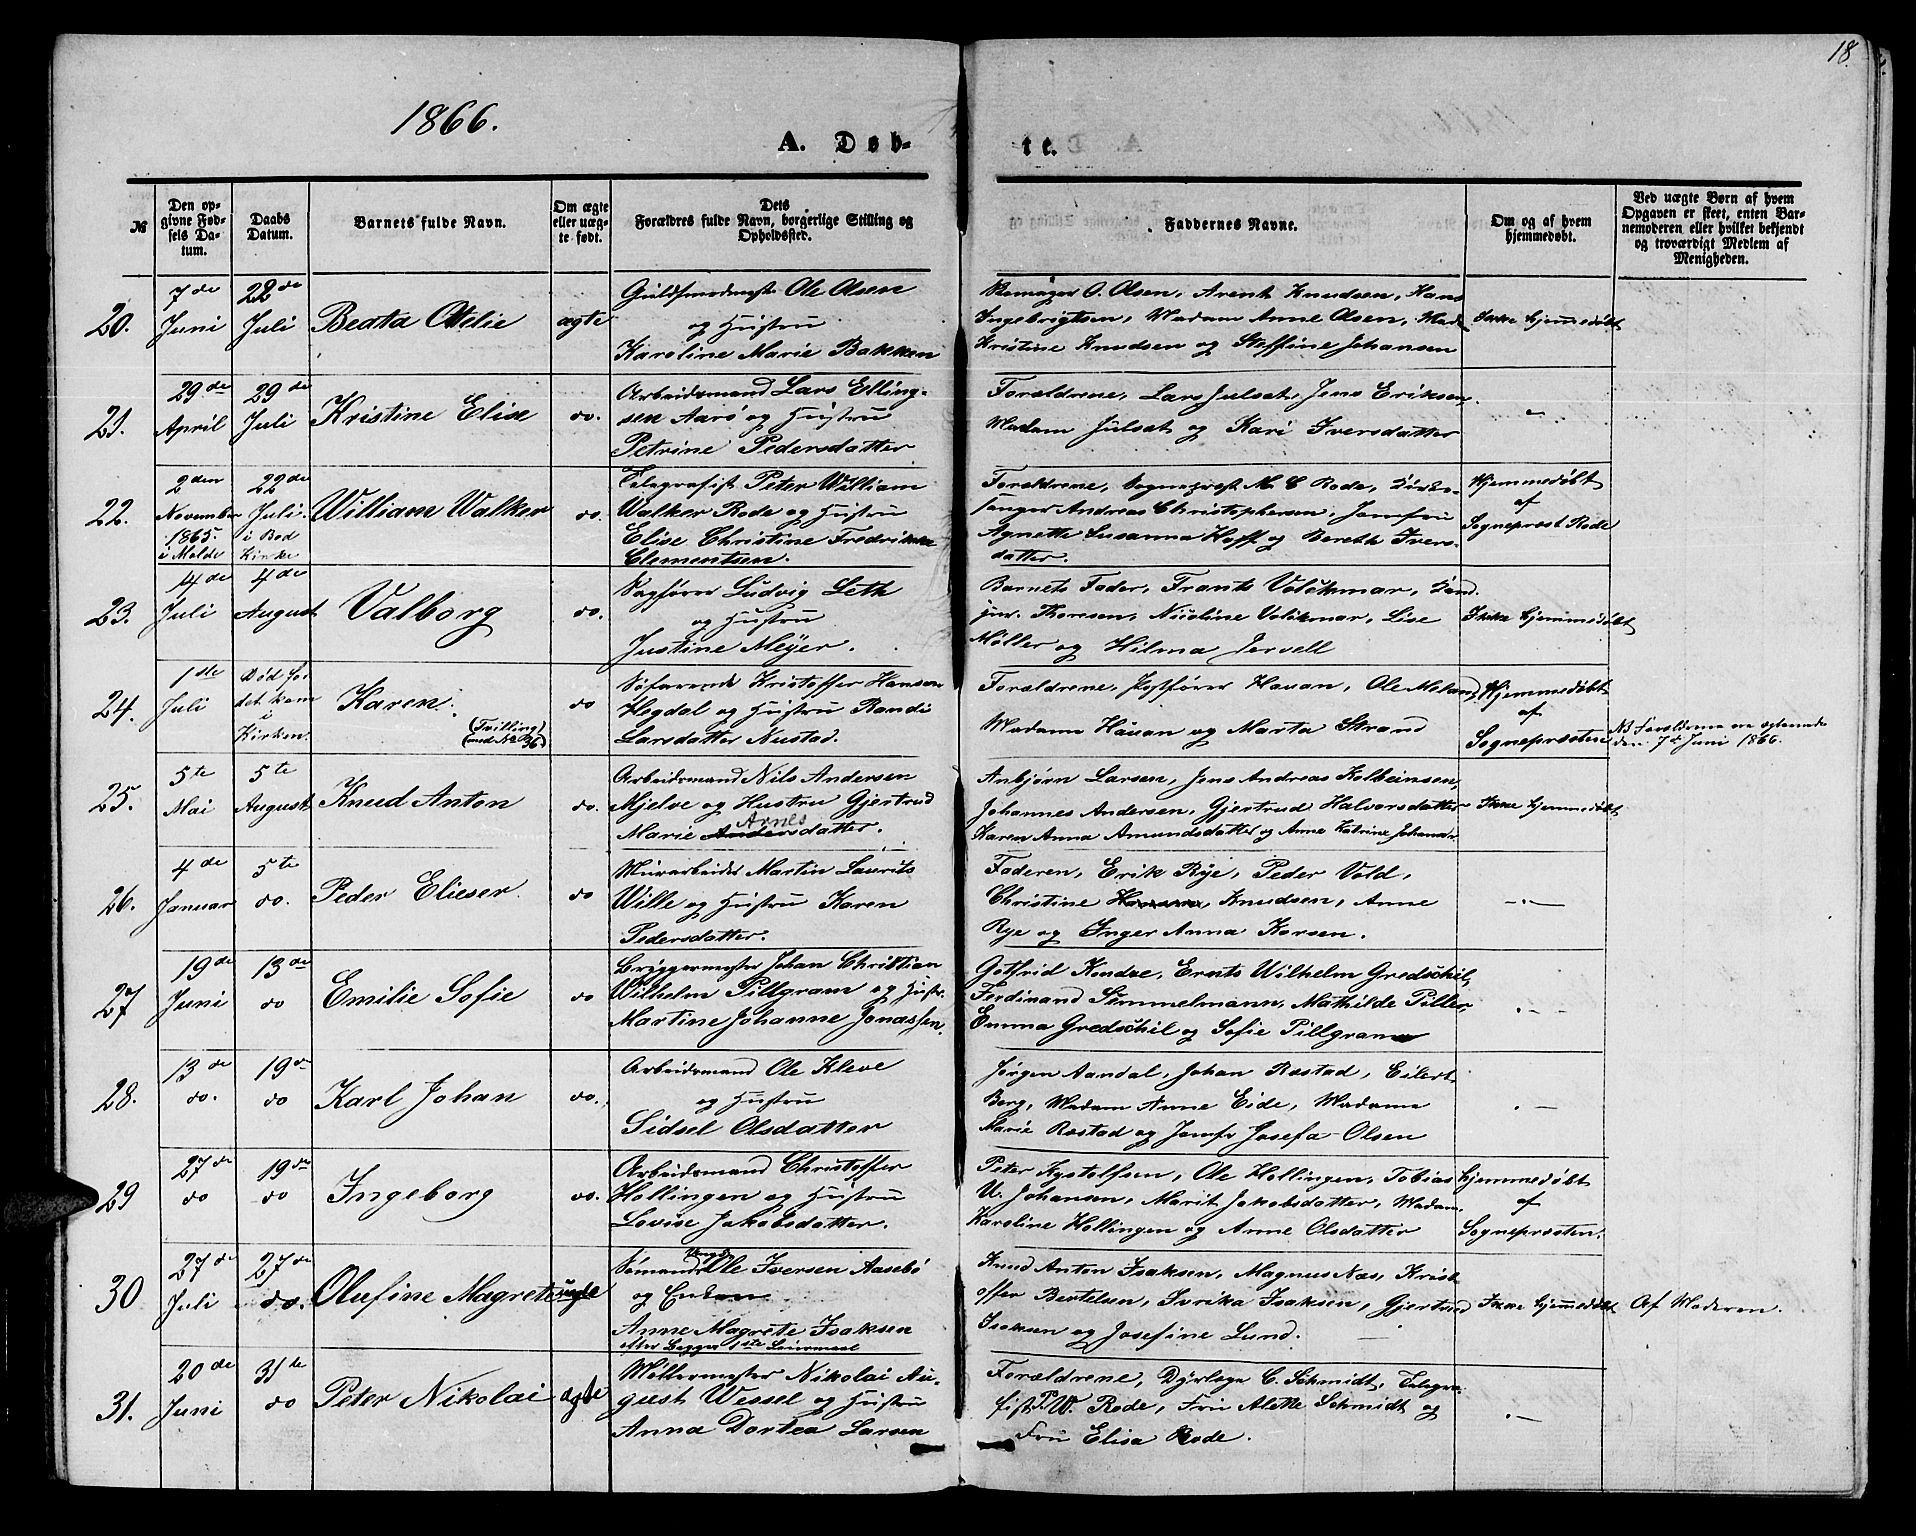 18.
1866.
A. Døb-
te.
№
Den op-
givne Fød-
sels Da-
tum.
Daabs
Datum.
Barnets fulde Navn.
Om ægte
eller uæg-
te født.
Dets
Forældres fulde Navn, borgerlige Stilling og
Opholdssted.
Faddernes Navne.
Om og af hvem
hjemmedøbt.
Ved uægte Børn af hvem
Opgaven er skeet, enten Bar-
nemoderen eller hvilket bekjendt
og troværdigt Medlem af
Menigheden.
20.
7de
Juni
22de
Juli
Beata Otelie
ægte
Guldsmedmester Ole Olsen
og Hustru
Karoline Marie Bakken
O. Olsen, Arent Knudsen, Hans
Ingebrigtsen, Madam Anne Olsen, Mad.
Kristine Knudsen og Steffine Johansen
Ikke hjemmedøbt
21.
29de
April
29de
Juli
Kristine Elise
do.
Arbeidsmand Lars Elling-
sen Aarø og Hustru
Petrine Pedersdatter
Forældrene, Lars Julsæt, Jens Eriksen,
Madam Julsæt og Kari Iversdatter
22.
2den
November
1865.
i Molde
22de
Juli.
i Bod
Kirke
William Walker
do.
Telegrafist Peter William
Walker Rode og Hustru
Elise Christine Fredrikke
Clementsen.
Forældrene, Sogneprest M. C. Rode, Kirke-
sanger Andreas Christophersen, Jomfru
Agnette Susanna Hoff og Bereth Ivers-
datter.
Hjemmedøbt
af
Sogneprest Rode
23.
4de
Juli
4de
August
Valborg
do.
Sagfører Ludvig Leth
og Hustru
Justine Meyer.
Barnets Fader, Frants Volckmar, Kand.
jur. Thoresen, Nicoline Volckmar, Lise
Møller og Hilma Jervell
Ikke hjemmedøbt
24.
1ste
Juli
Død før
det kom
i
Kirken.
Karen.
(Tvilling
med No 36)
do
Søfarende Kristoffer Hansen
Hegdal og Hustru Randi
Larsdatter Nustad.
Forældrene, Postfører Hauan, Ole Meland,
Madam Hauan og Marta Strand
Hjemmedøbt
af
Sognepresten
NB Forældrene ere egteviede
den 7de Juni 1866.
25.
5te
Mai
5te
August
Knud Anton
do.
Arbeidsmand Nils Andersen
Mjelve og Hustru Gjertrud
Arnes
Marie Andersdatter.
Anbjørn Larsen, Jens Andreas Kolbeinsen,
Johannes Andersen, Gjertrud Halvorsdatter
Karen Anna Amundsdatter og Anne Katrine Johansdr
Ikke hjemmedøbt
26.
4de
Januar
5te
do.
Peder Elieser
do
Murarbeider Martin Laurits
Wille og Hustru Karen
Pedersdatter.
Faderen, Erik Rye, Peder Vold,
Christine Hansen, Knudsen, Anne
Rye og Inger Anna Korsen.
-"-
27
19de
Juni
13de
do
Emilie Sofie
do
Bryggermester Johan Christian
Wilhelm Pillgram og Hustru
Martine Johanne Jonassen.
Gotfrid Kondze, Ernts Wilhelm Gredschil,
Ferdinand Simmelmann, Mathilde Piller,
Emma Gredschil og Sofie Pillgram
28.
13de
do.
19de
do
Karl Johan
do.
Arbeidsmand Ole Kleve
og Hustru
Sidsel Olsdatter
Jørgen Aandal, Johan Røstad, Eilert
Berg, Madam Anne Eide, Madame
Marie Røstad og Jomfr Josefa Olsen
29
27de
do
19de
do
Ingeborg
do.
Arbeidsmand Christoffer
Hollingen og Hustru
Lovise Jakobsdatter.
Peter Kystolfsen, Ole Hollingen, Tobias
U. Johansen, Marit Jakobsdatter, Madam
Karoline Hollingen og Anne Olsdatter
Hjemmedøbt
af
Sognepresten.
30
27de
Juli
27de
do.
Olufine Magrete
uægte
Sømand Ole Iversen Aasebø
og Enken
Anne Magrete Isaksen
Ales begges 1ste Leiermaal
Knud Anton Isaksen, Magnus Næs, Krist-
offer Bertelsen, Ivrika Isaksen, Gjertrud
Isaksen og Josefine Lund.
Ikke hjemmedøbt
Af Moderen.
31.
20de
Juni
31te
do
Peter Nikolai
ægte
Møllermester Nikolai Au-
gust Wessel og Hustru
Anna Dortea Larsen
Forældrene, Dyrlæge C. Schmidt, Telegra-
fist P. W. Rode, Fru Alette Schmidt og
Fru Elisa Rode.